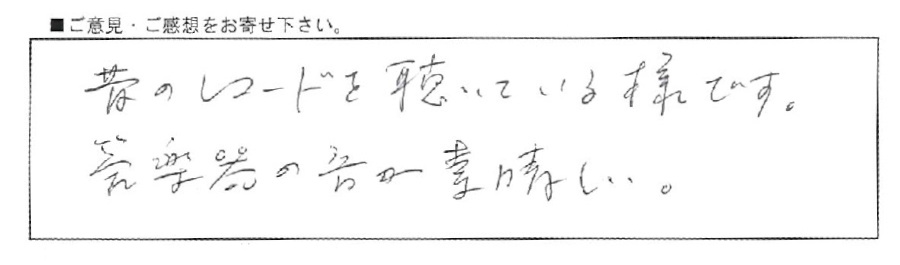 ■ご意見・ご感想をお寄せ下さい。
昔のレコードを聴いている様です。
管楽器の音が素晴しい。